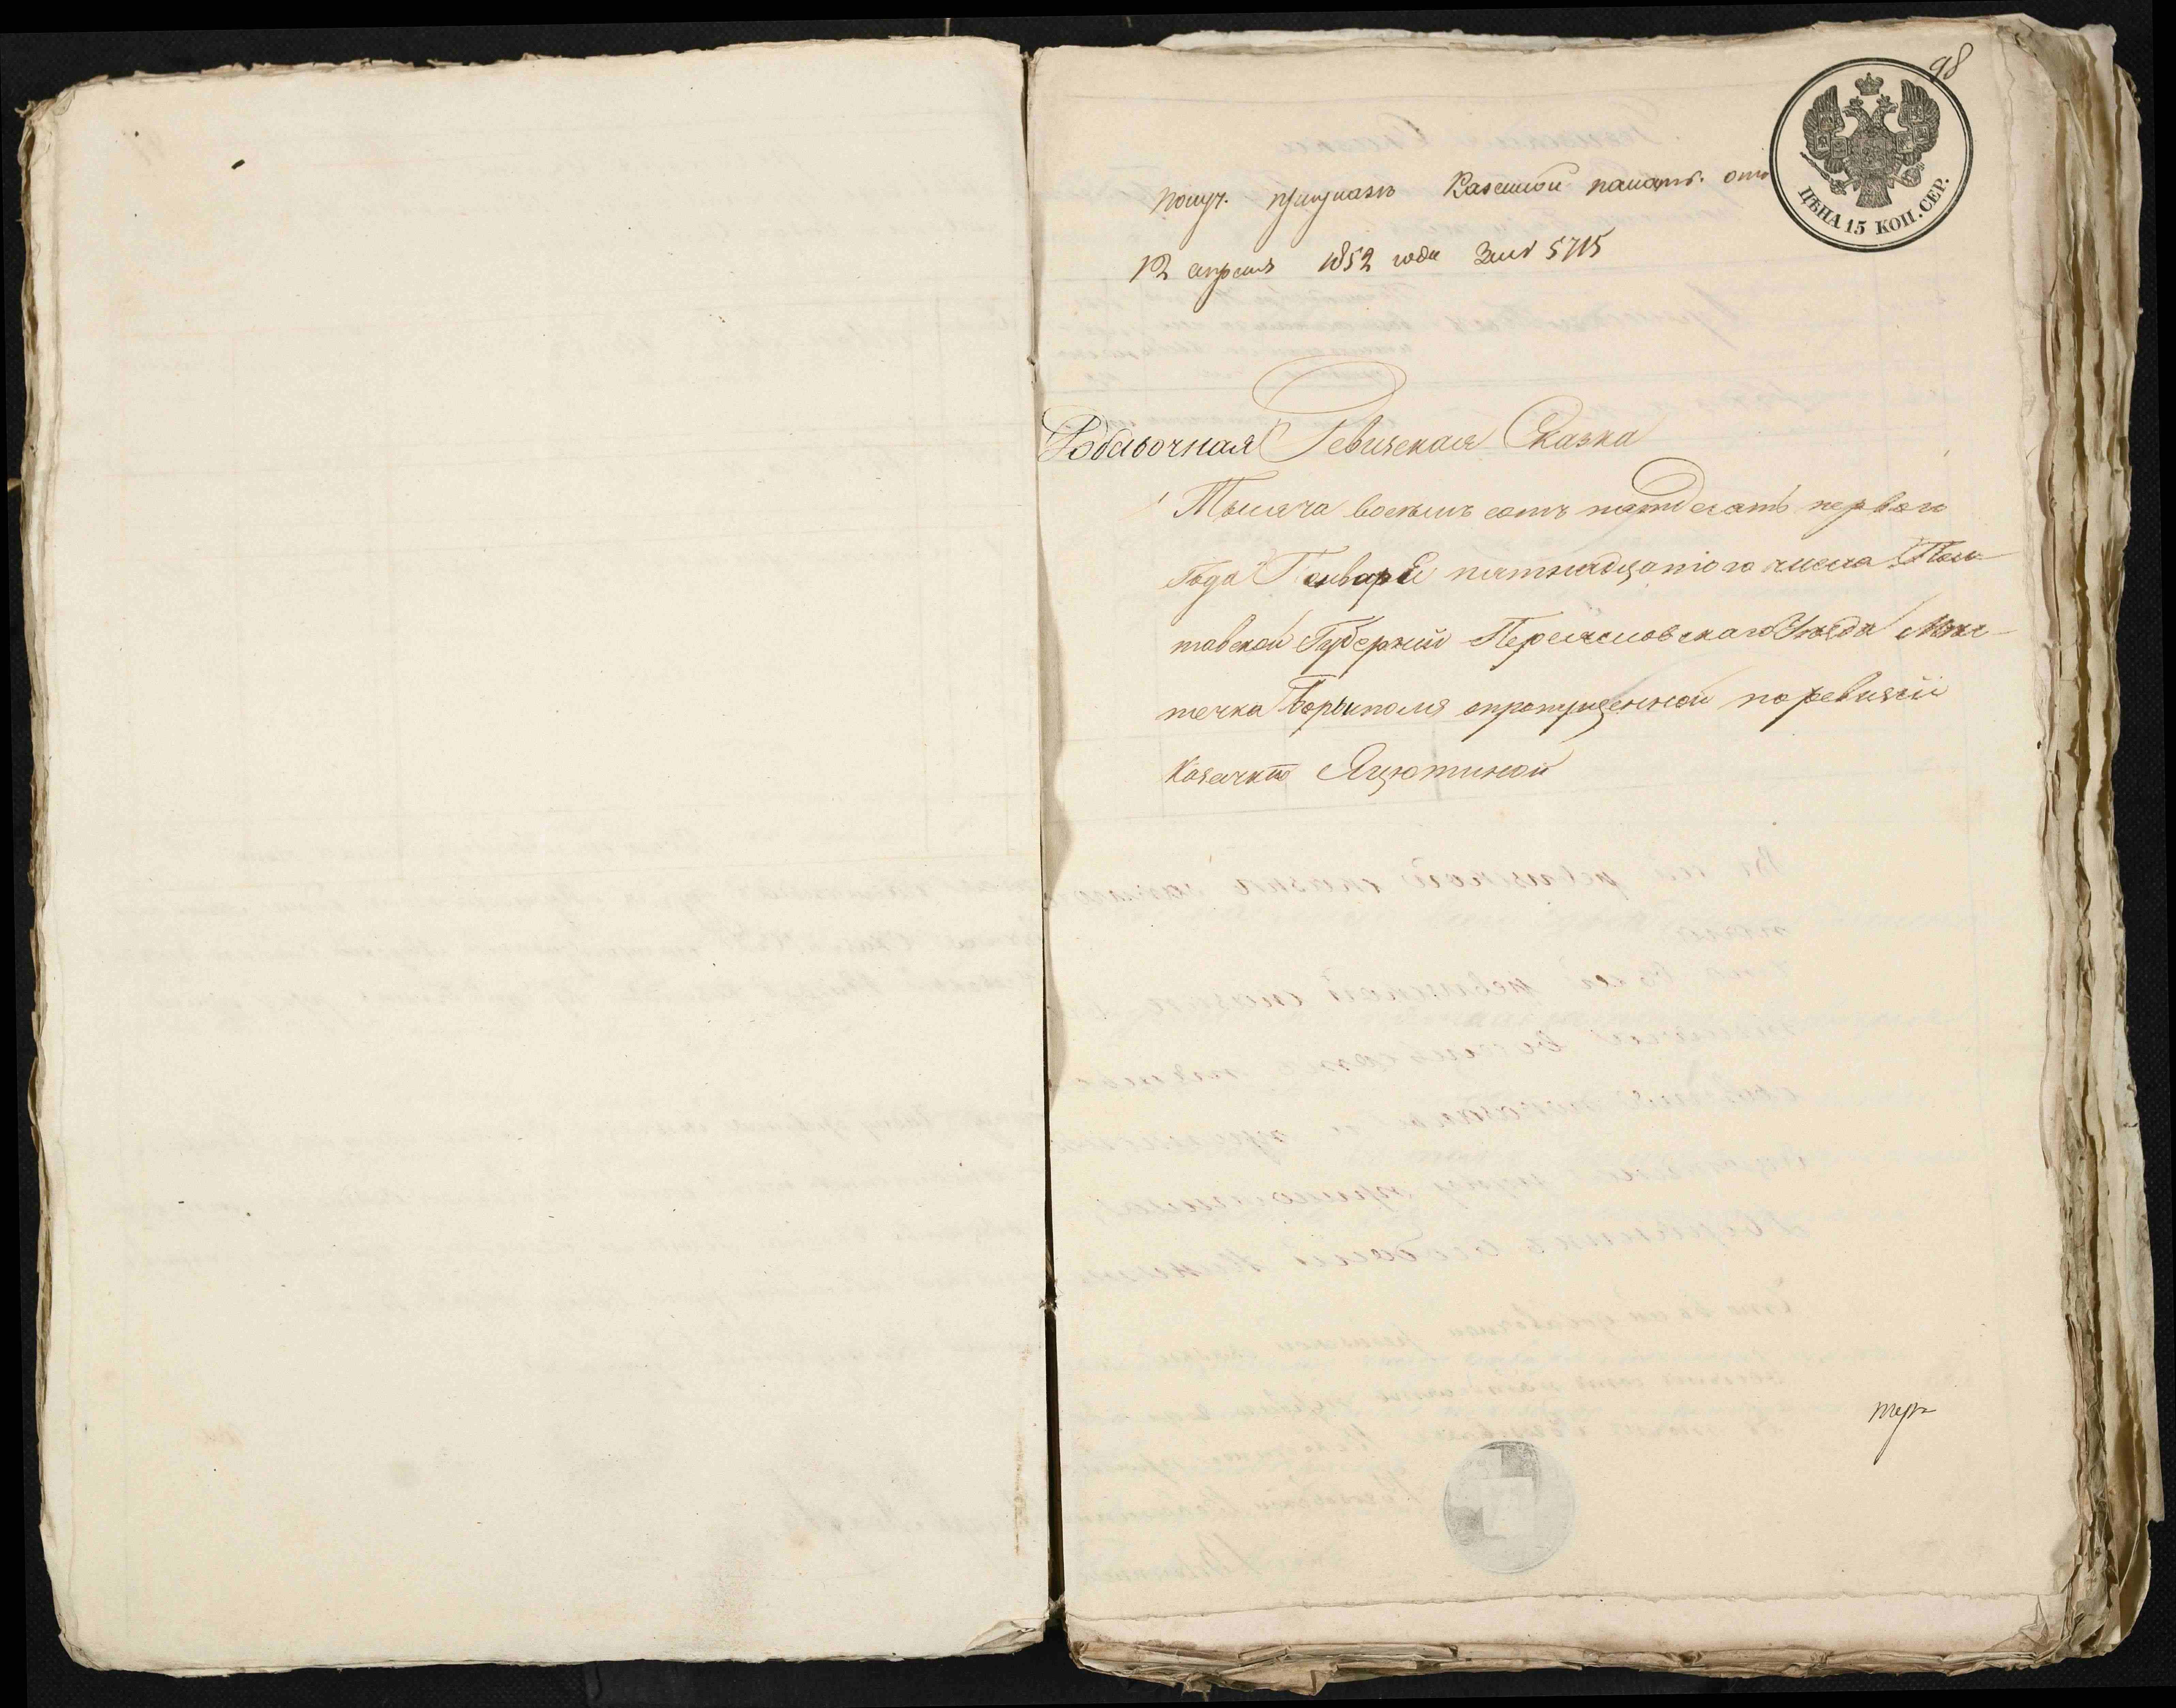 98
ЦѢНА 15 КОП. СЕР.
Казенной палаты отъ
12 апреля 1852 года за № 5715
Добавочная Ревизская Сказка
Тысяча восемъ сотъ пятдесятъ первого
года Генваря пятнадцятого числа Пол-
тавской Губерніи Переяславскаго Уезда Мѣс-
течка Борисполя о пропущенной по ревизіи
Козачкѣ Яцютиной